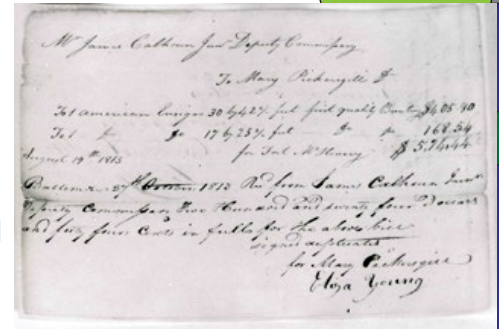 Mr James Calhoun Junr Deputy Commssary
To Mary Pickersgill Dr
To 1 american Ensign 30 by 42 feet first quality Bunting $405.90
To 1 do do 17 by 25 feet do do 168.54
August 19th 1813 for Fort McHenry $ 574.44
Baltimore 27th October 1813 Recd from James Calhoun Junr
Deputy Commssary Five Hundred and seventy four Dollars
and forty four Cents in full for the above bill
signed duplicates
for Mary Pickersgill
Eliza Young